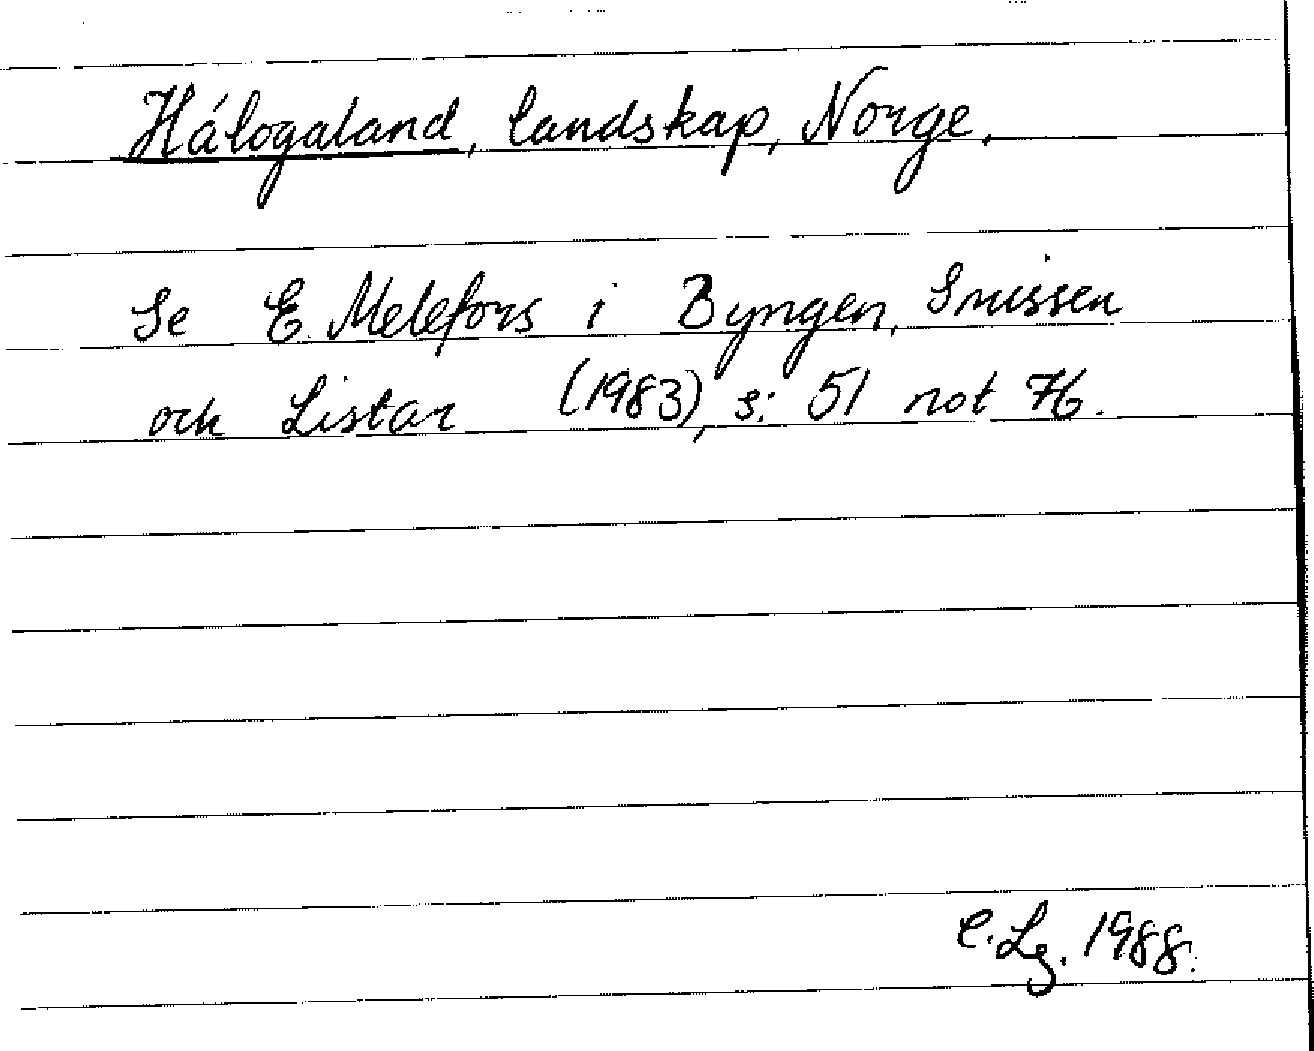 Hálogaland, landskap, Norge,
Se E. Melefors i Byngen, Snissen
och Listar (1983), s: 51 not 76.
C. Lg. 1988.